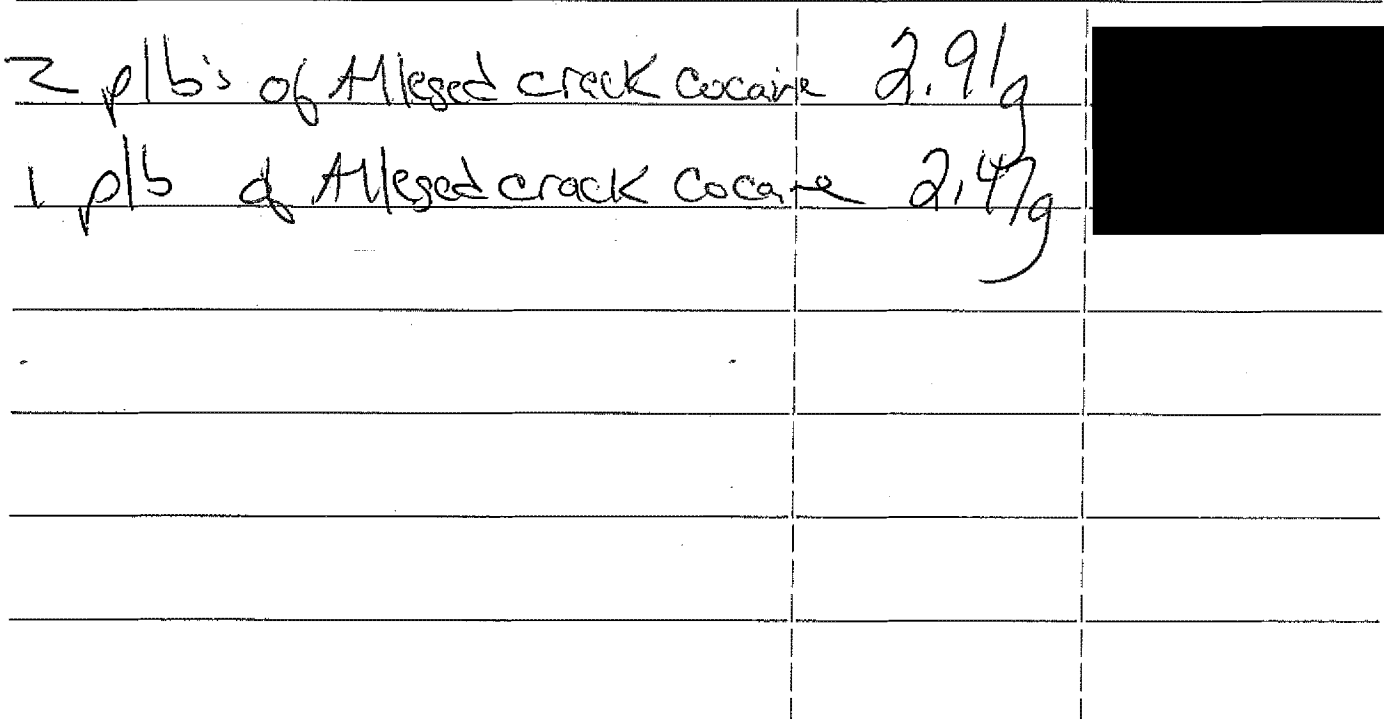 2 plb's of Alleged crack cocaine 2.91g
1 plb of Alleged crack cocaine 2.47g